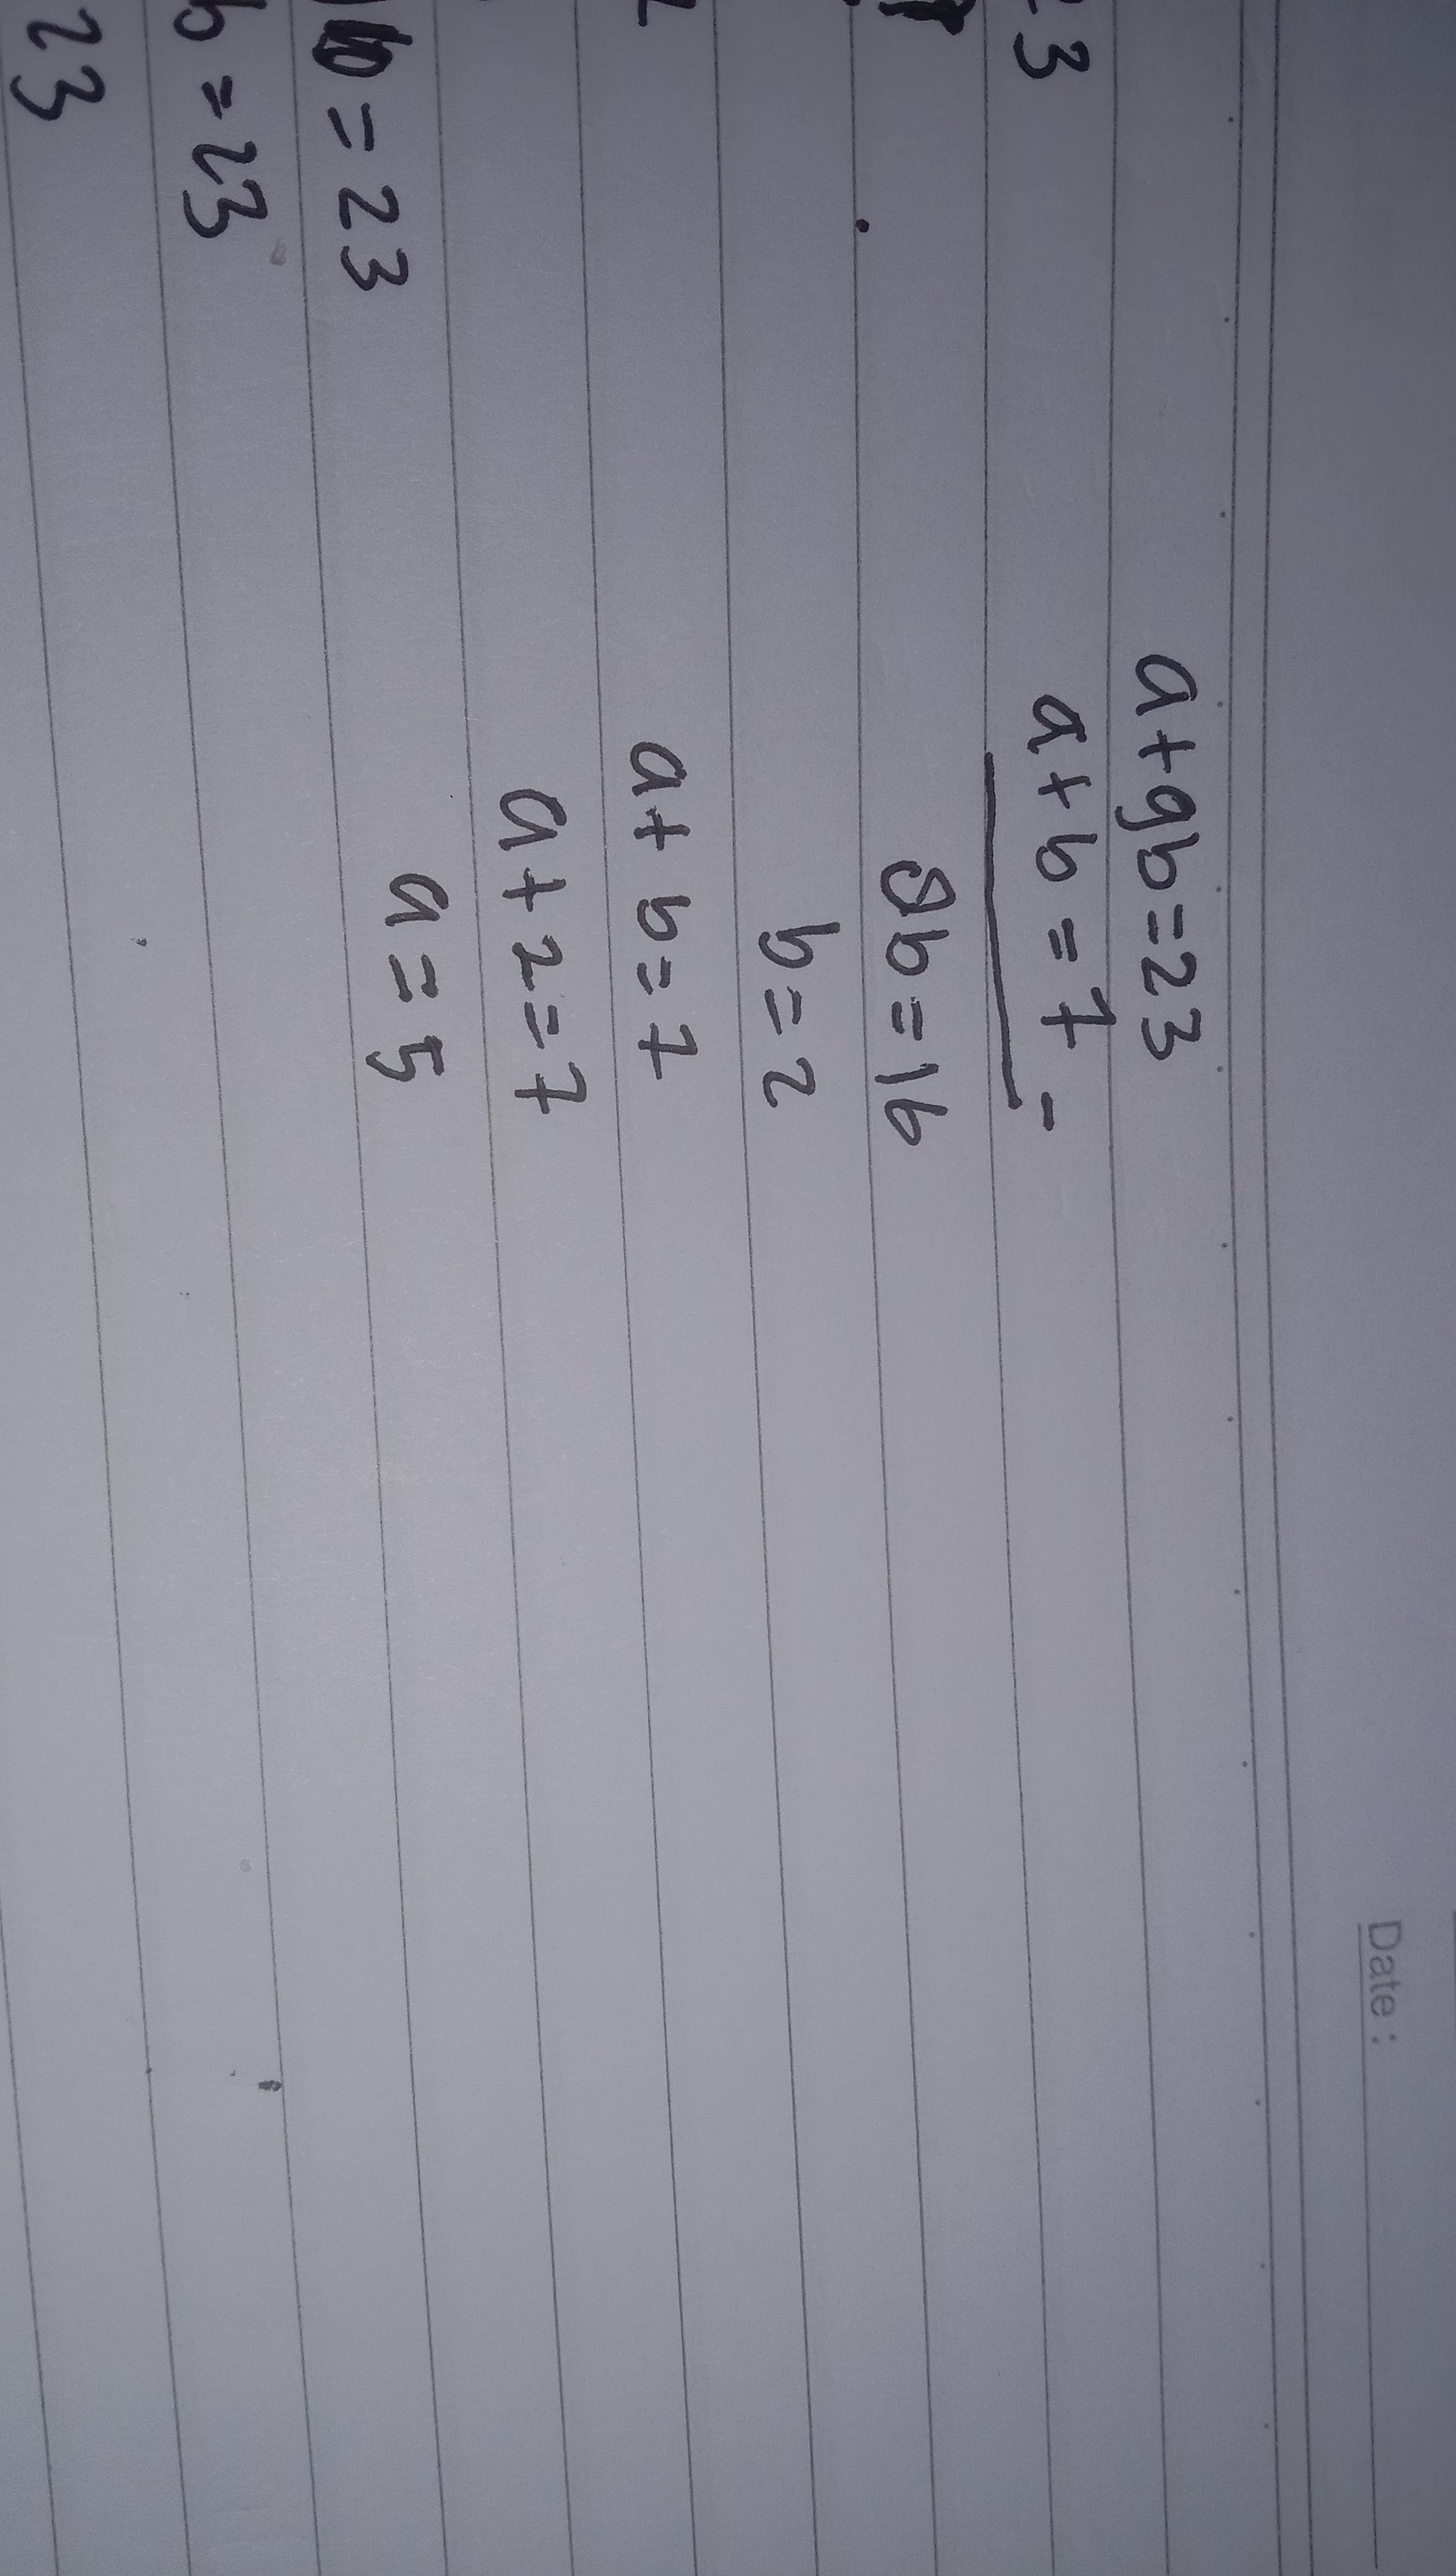 Date :
a+9b=23
a+b=7 -
8b=16
b=2
a+b=7
a+2=7
a=5
3
= 23
b = 23
23